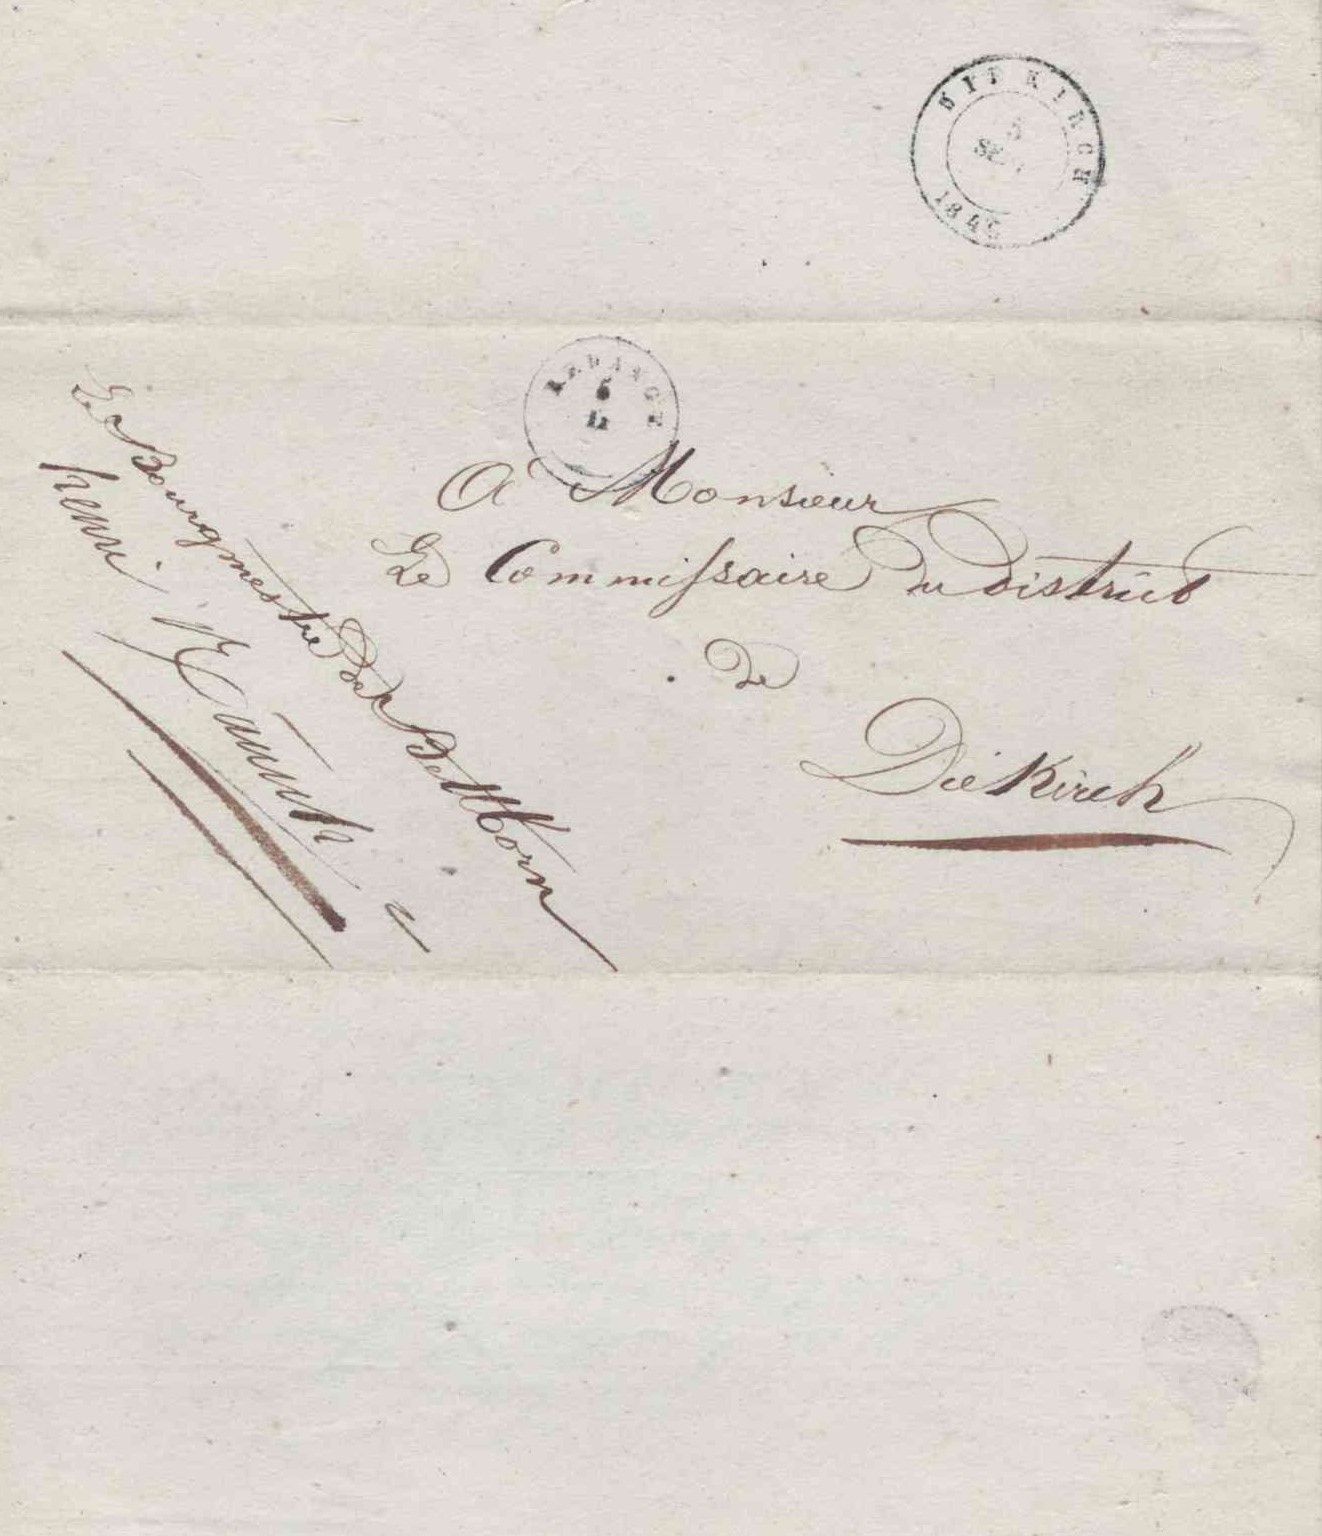 DIEKIRCH
5
1846
REDANGE
6
A Monsieur
Le Commissaire du District
de
Diekirch
Le Bourgmestre de Bettborn
henri